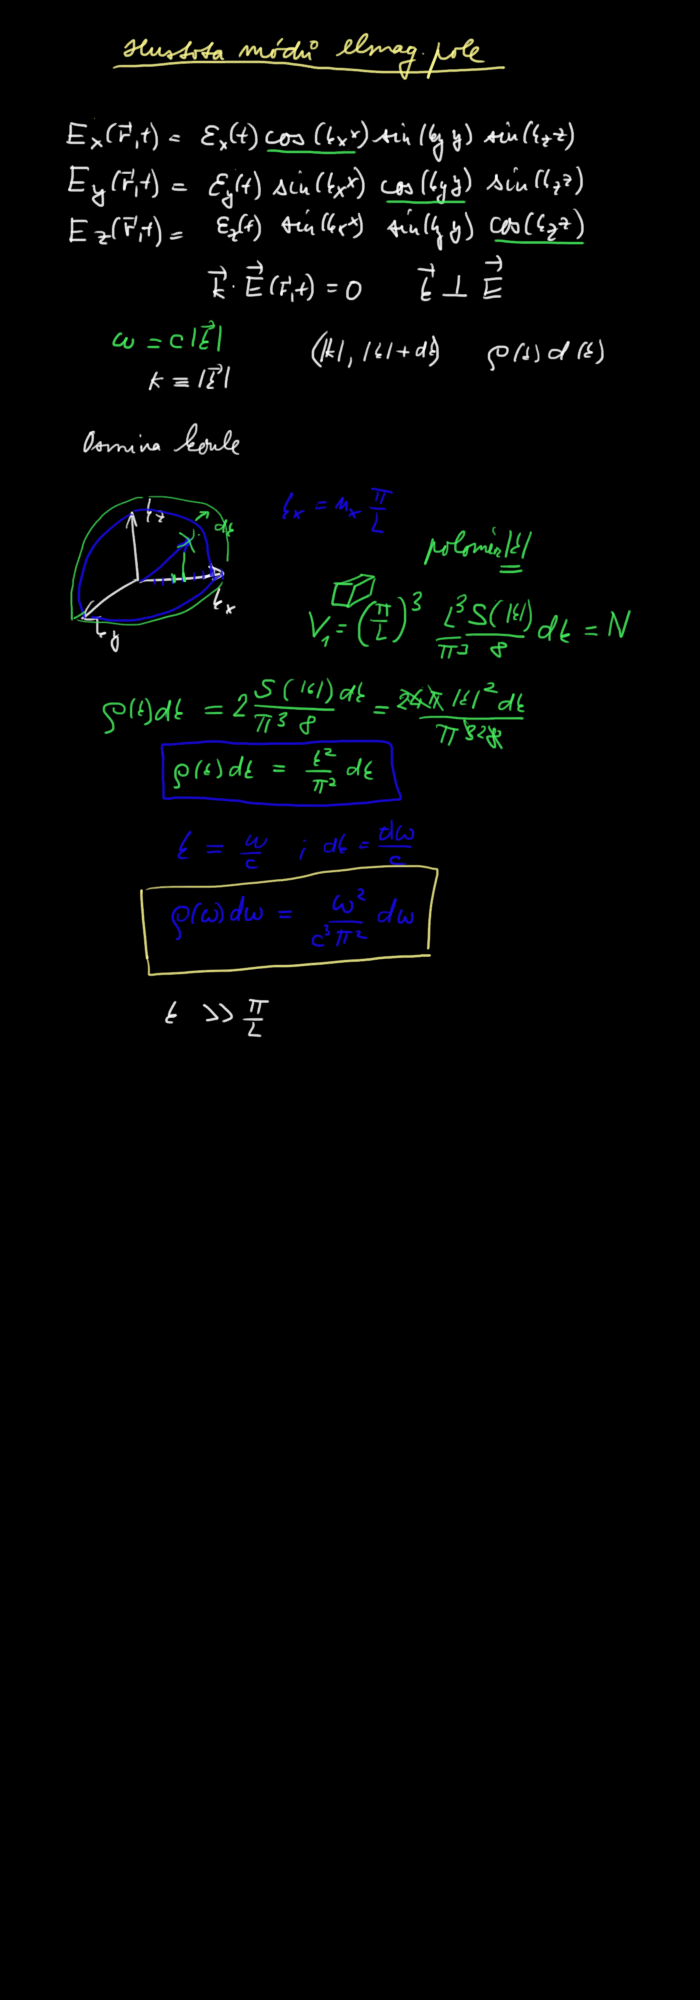 Hustota módů elmag. pole
E_x(r⃗,t) = ℰ_x(t) cos(k_x x) sin(k_y y) sin(k_z z)
E_y(r⃗,t) = ℰ_y(t) sin(k_x x) cos(k_y y) sin(k_z z)
E_z(r⃗,t) = ℰ_z(t) sin(k_x x) sin(k_y y) cos(k_z z)
k⃗ · E⃗(r⃗,t) = 0 k⃗ ⊥ E⃗
ω = c|k⃗| (|k|, |k| + dk) ρ(k) d(k)
k ≡ |k⃗|
Osmina koule
k_z dk k_x k_y
k_x = n_x π/L
poloměr |k|
V_1 = (π/L)^3 L^3/π^3 S(|k|)/8 dk = N
ρ(k)dk = 2 S(|k|)dk/(π^3 8) = 24π|k|^2 dk/(π^3 8)
ρ(k)dk = k^2/π^2 dk
k = ω/c ; dk = dω/c
ρ(ω)dω = ω^2/(c^3 π^2) dω
k >> π/L